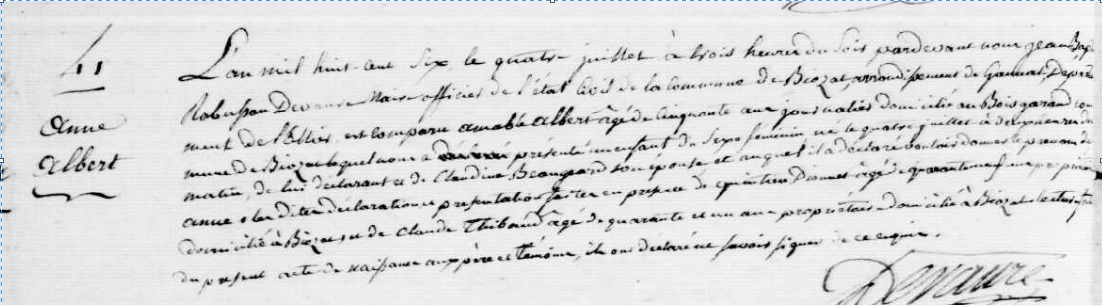 41
anne
albert
L'an mil huit cent six, le quatre juillet à trois heures du soir pardevant nous jean Bap
Robusson Devaure Maire officier de l'état Civil de la Commune de Biozat, arrondissement de Gannat, Départe
ment de l'allier, est comparu amable albert âgé de Cinquante ans journalier domicilié au Bois garand com
mune de Biozat lequel nous a présenté un enfant du sexe féminin, né le quatre juillet à dix heures du
matin, de lui déclarant et de Claudine Beauregard son épouse et auquel il a déclaré vouloir donner le prenom de
anne les dites déclaration et presentation faites en presence de quintien âgé de quarante propriétaire
domicilié à Biozat, et de Claude Thibaud âgé de quarante et un ans propriétaire domicilié à Biozat lecture
du present acte de naissance aux père et témoins, ils ont déclaré ne savoir signer de ce enquis.
Devaure